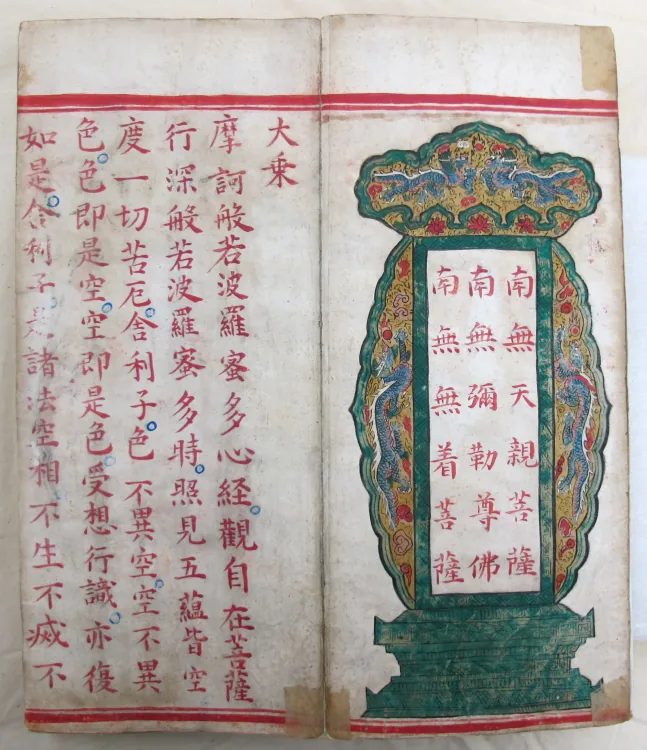 南無天親菩薩
南無彌勒尊佛
南無無着菩薩
大乘
摩訶般若波羅蜜多心経。觀自在菩薩
行深般若波羅蜜多時。照見五蘊皆空
度一切苦厄。舍利子。色不異空。空不異
色。色即是空。空即是色。受想行識。亦復
如是。舍利子。是諸法空相不生不滅不